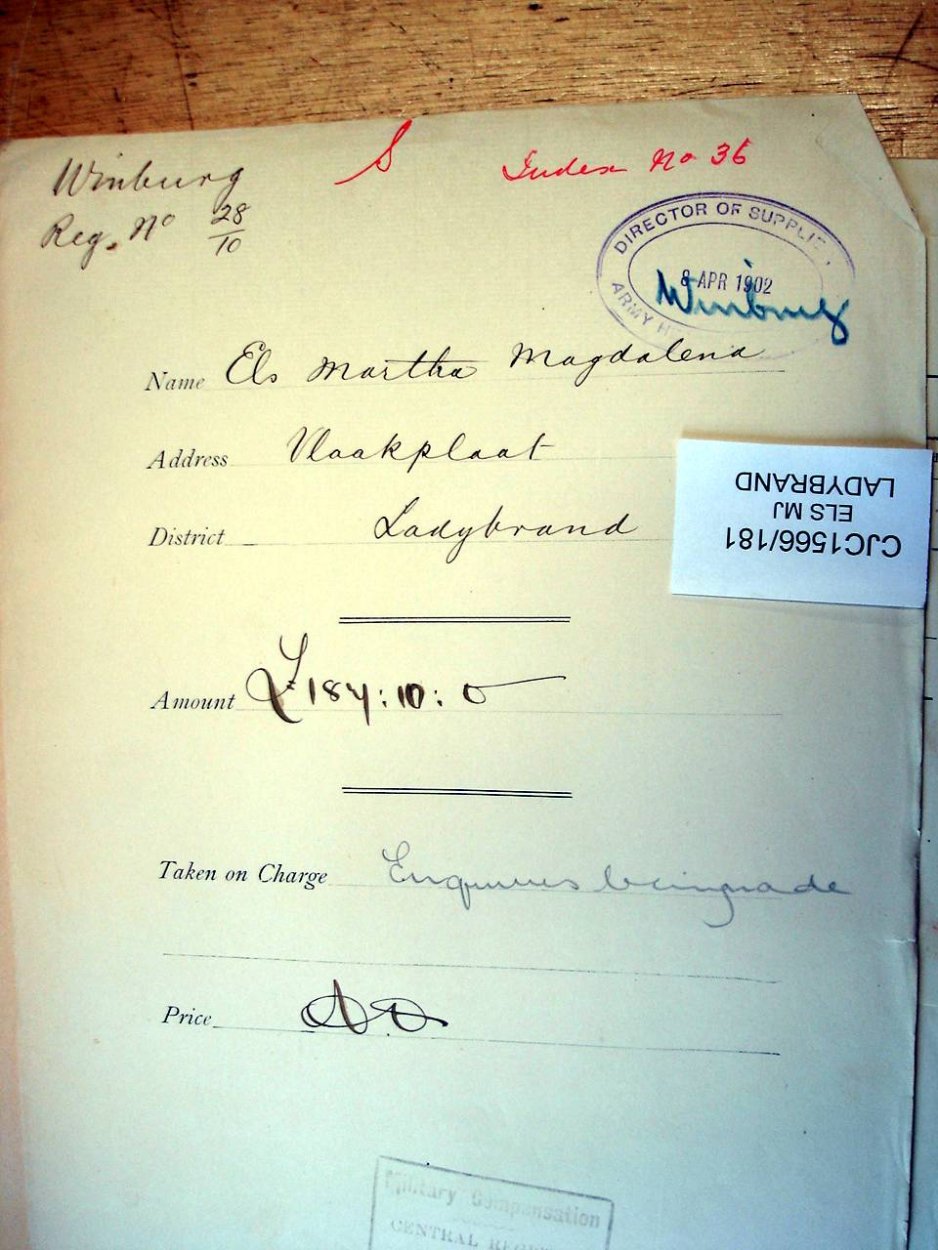 Winburg S Index No 36
Reg. No 28/10
DIRECTOR OF SUPPLIE
8 APR 1902
Winburg
ARMY H
Name Els Martha Magdalena
Address Vlaakplaat
District Ladybrand
CJC1566/181
ELS MJ
LADYBRAND
Amount £184:10:0
Taken on Charge Enquiries being made
Price
Military Compensation
CENTRAL REG